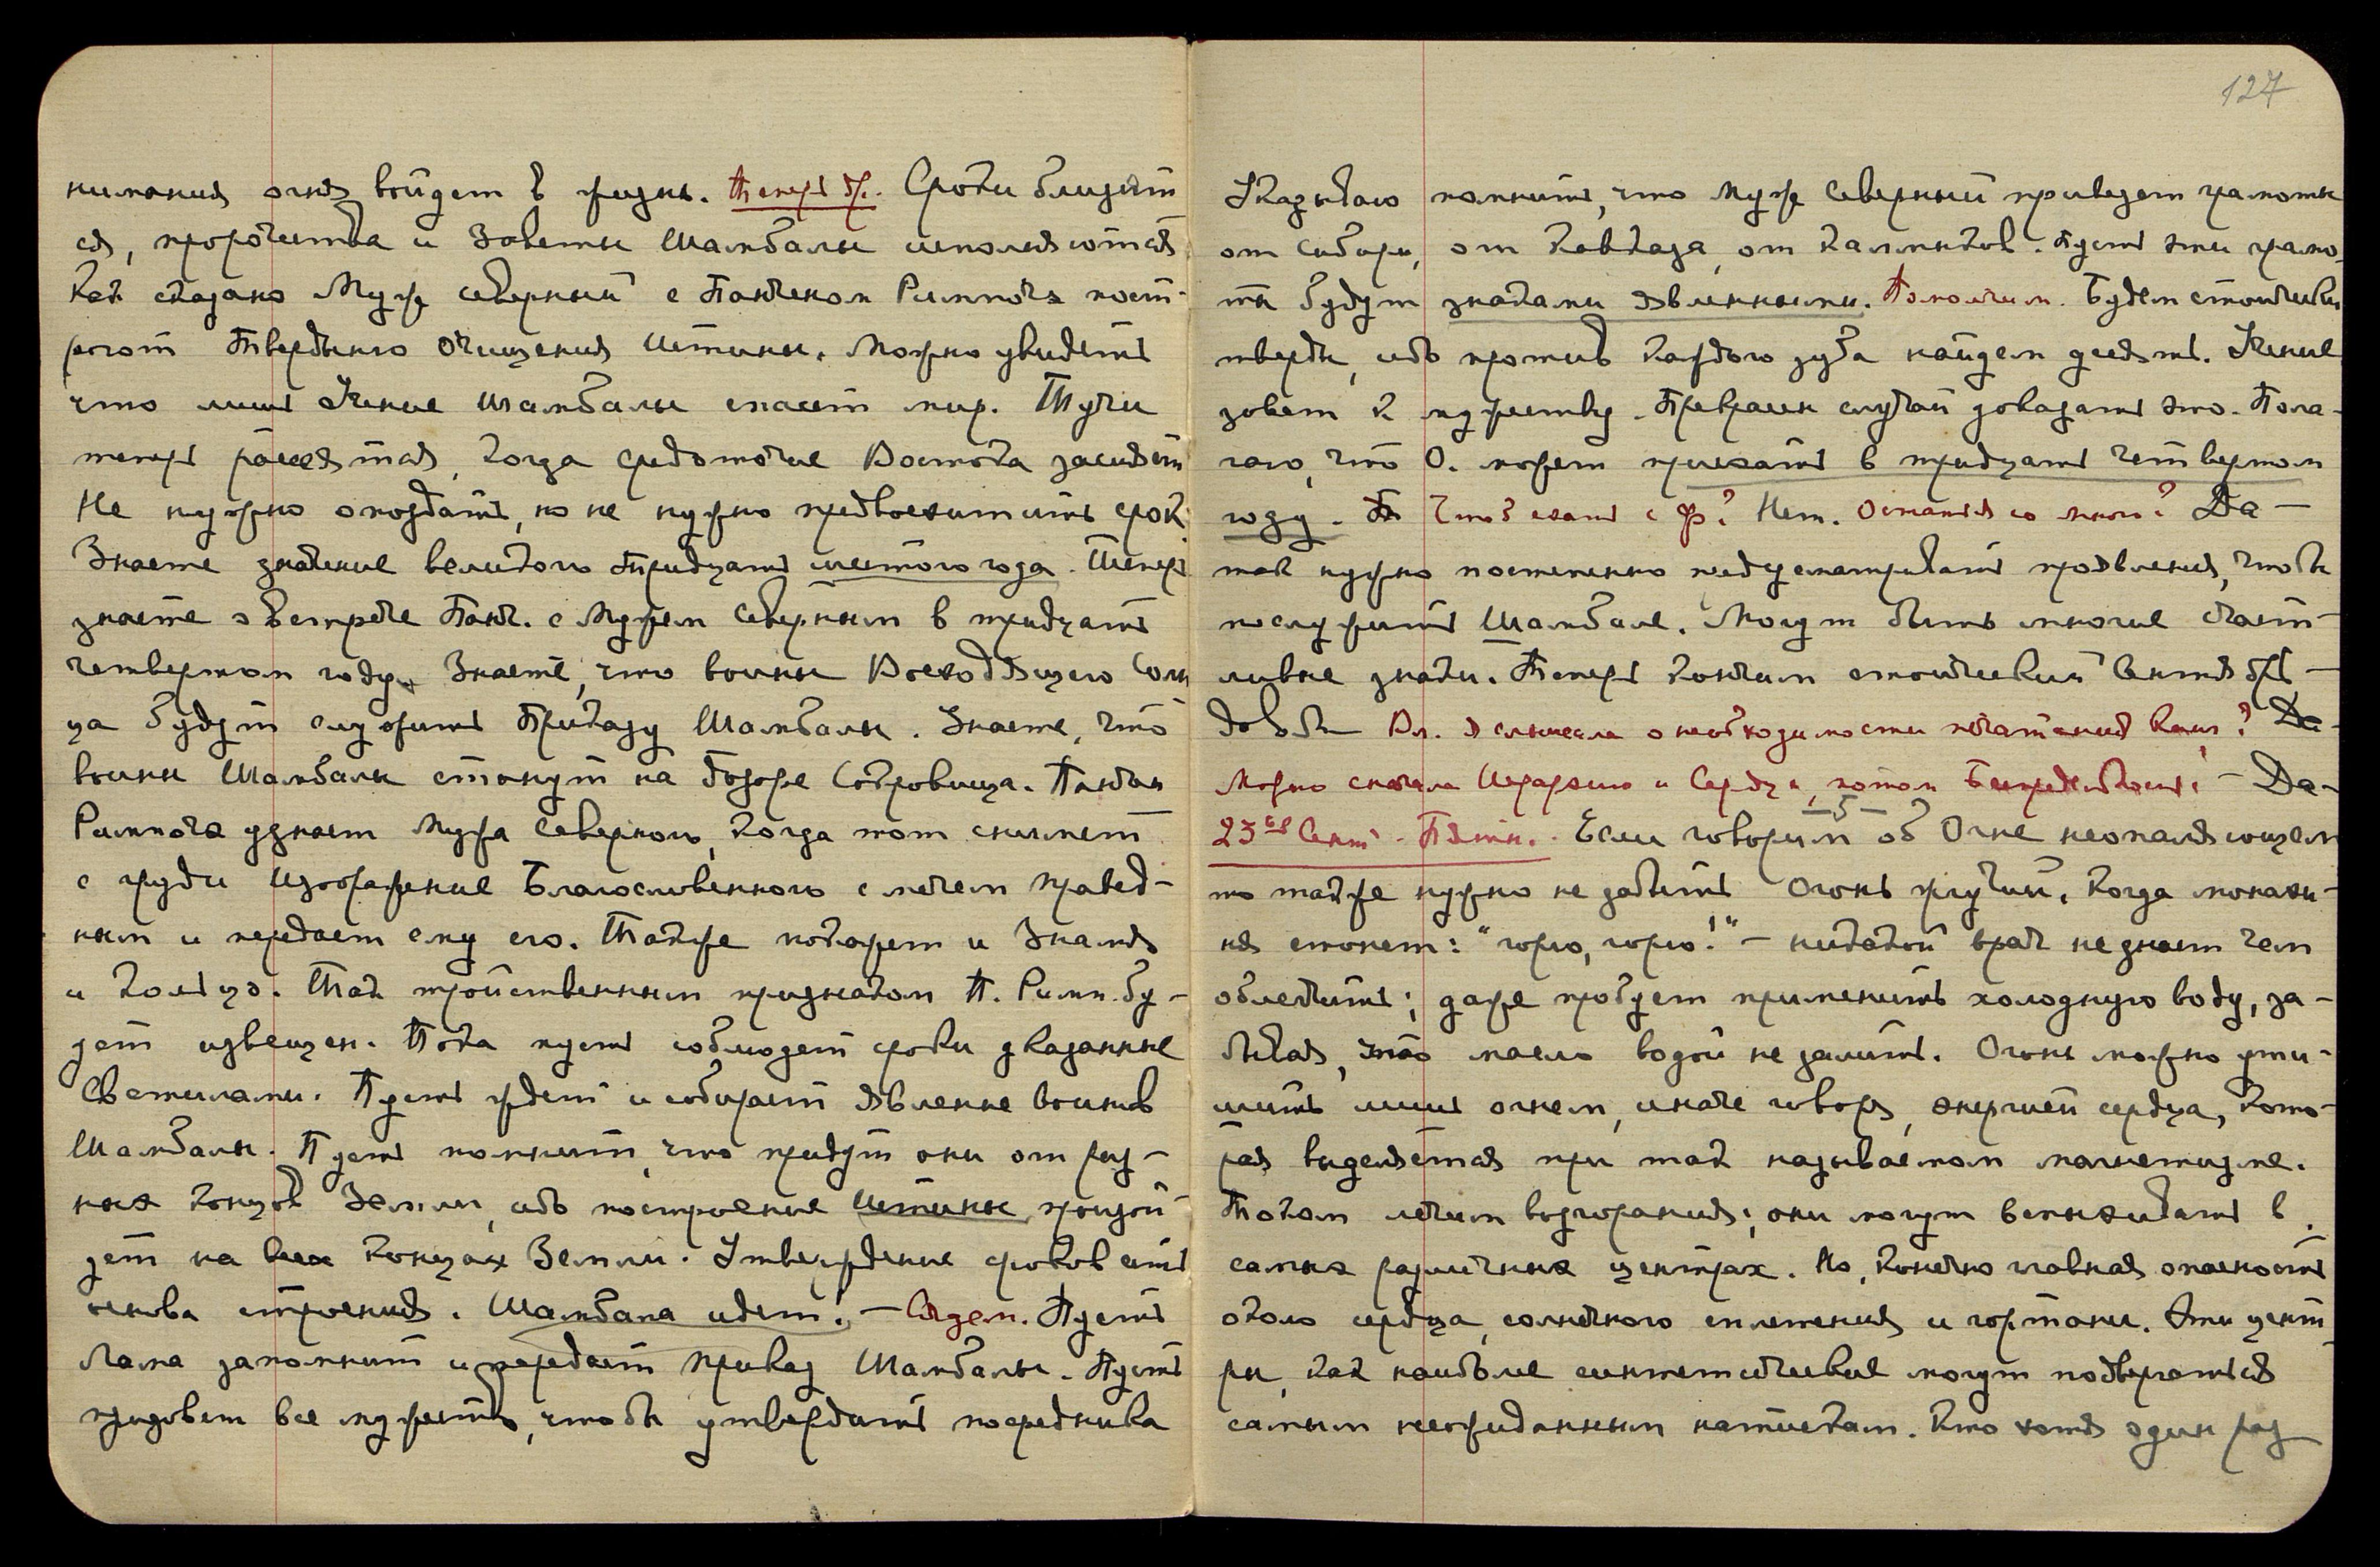 нимания огня войдет в жизнь. Теперь др. Сроки близят
ся, пророчества и Заветы Шамбалы исполняются
Как сказано Муж северный с Панченом Римпоча пост-
роят Твердыню Очищения Истины. Можно увидеть
что лишь Учение Шамбалы спасет мир. Тучи
теперь рассеятся, когда средоточие Востока засияет
Не нужно опоздать, но не нужно предвосхитить срок
Знаете значение великого тридцать шестого года. Теперь
знаете о встрече Панч. с Мужем Северным в тридцать
четвертом году. Знаете, что воины Восходящего Солн
ца будут служить Приказу Шамбалы. Знаете, что
воины Шамбалы станут на дозоре Сокровища. Панчен
Римпоча узнает Мужа Северного, когда тот снимет
с груди изображение Благословенного с мечем правед-
ным и передает ему его. Также покажет и Знамя
и Кольцо. Так тройственным признаком П. Римп. бу-
дет извещен. Пока пусть соблюдет сроки указанные
Светилами. Пусть ждет и собирает явленне воинов
Шамбалы. Пусть помнит, что придут они от раз-
ных концов Земли, ибо построение Истины произой
дет на всех концах Земли. Утверждение сроков есть
основа строения. Шамбала идет! — Сядем. Пусть
Лама запомнит и передает приказ Шамбалы. Пусть
призовет все мужество, чтобы утвердить посредника
127
Указываю помнить, что Муж Северный привезет грамоты
от Сибири, от Кавказа, от Калмыков. Пусть эти грамо
ты будут знаками явленными. Помолчим. Будем стойчески
тверды, ибо против каждого зуба найдем десять. Учение
зовет к мужеству. Превраен случай доказать это. Пола-
гаю, что О. может приехать в тридцать четвертом
году. Чтоб ехать с Ф? Нет. Остаться со мною? Да —
так нужно постепенно предусматривать проявления, чтобы
послужить Шамбале. Могут быть многие счаст-
ливые знаки. Теперь кончим стоический Сентябрь —
довольно Вл. я слышала о необходимости печатания книг? Да-
Можно сначала Иерархию и Сердце, потом Беспредельность? — Да-
— 5 —
23ье Сент. Пятн. Если говорим об Огне неопаляющем
то также нужно не забыть Огонь жгучий. Когда монахи-
ня стонет: "горю, горю!" — никакой врач не знает чем
облегчить; даже пробует применить холодную воду, за-
бывая, что масло водой не залить. Огонь можно ути-
шить лишь огнем, иначе говоря, энергией сердца, кото-
рая выделяется при так называемом магнетизме.
Током лечим возгорания; они могут вспыхивать в
самых различных центрах. Но, конечно главная опасность
около сердца, солнечного сплетения и гортани. Эти цент
ры, как наиболее синтетические могут подвергаться
самым неожиданным натискам. Кто хотя один раз